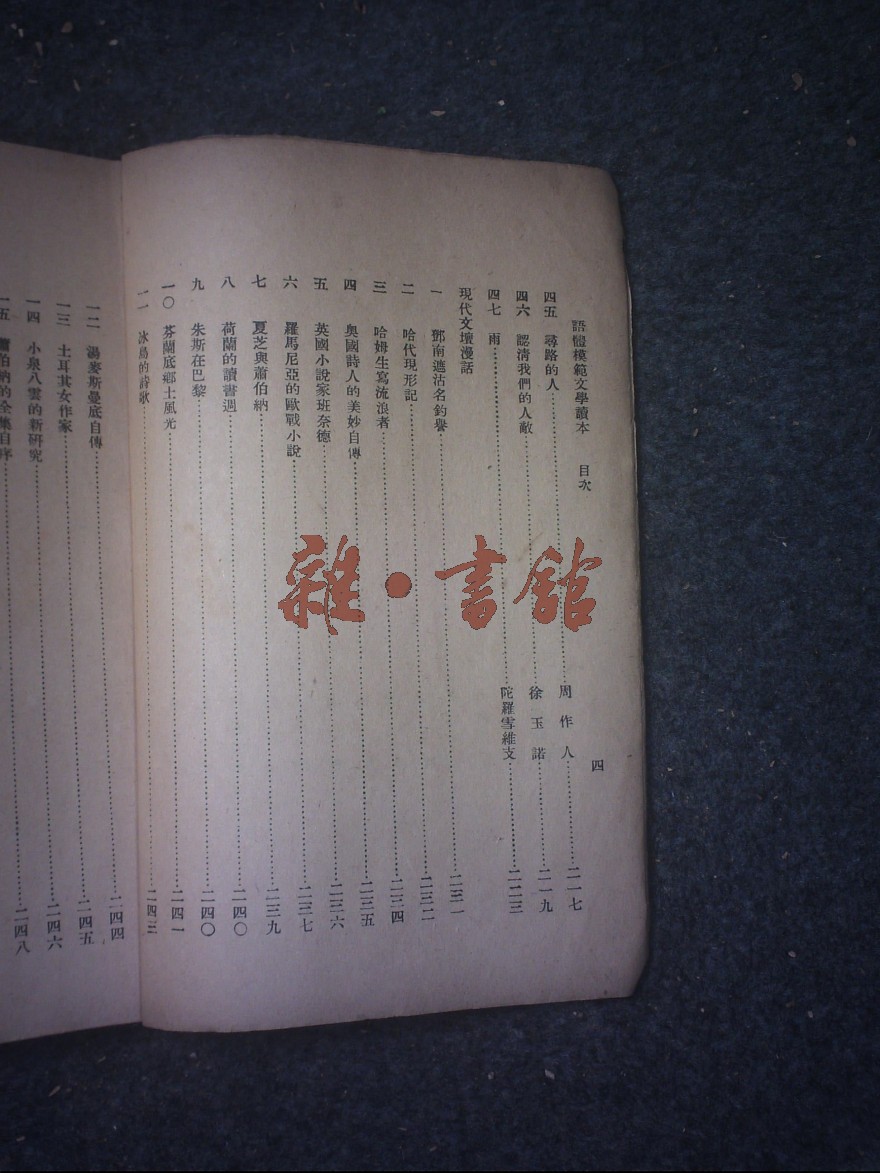 語體模範文學讀本 目次
四
四五 尋路的人……周作人……二一七
四六 認清我們的人敵……徐玉諾……二一九
四七 雨……陀羅雪維支……二二三
現代文壇漫話
一 鄧南遮沽名釣譽……二三一
二 哈代現形記……二三二
三 哈姆生寫流浪者……二三四
四 奧國詩人的美妙自傳……二三五
五 英國小說家班奈德……二三六
六 羅馬尼亞的歐戰小說……二三七
七 夏芝與蕭伯納……二三九
八 荷蘭的讀書週……二四〇
九 朱斯在巴黎……二四〇
一〇 芬蘭底鄉土風光……二四一
一一 冰島的詩歌……二四三
一二 湯麥斯曼底自傳……二四四
一三 土耳其女作家……二四五
一四 小泉八雲的新研究……二四六
一五 蕭伯納的全集自序……二四八
雜·書館